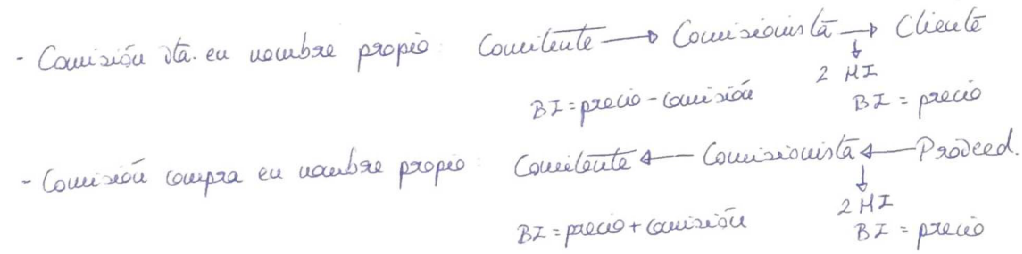 - Comisión vta. en nombre propio: Comitente → Comisionista → Cliente
↓
2 HI
BI = precio - comisión BI = precio
- Comisión compra en nombre propio: Comitente ← Comisionista ← Proveed.
↓
2 HI
BI = precio + comisión BI = precio